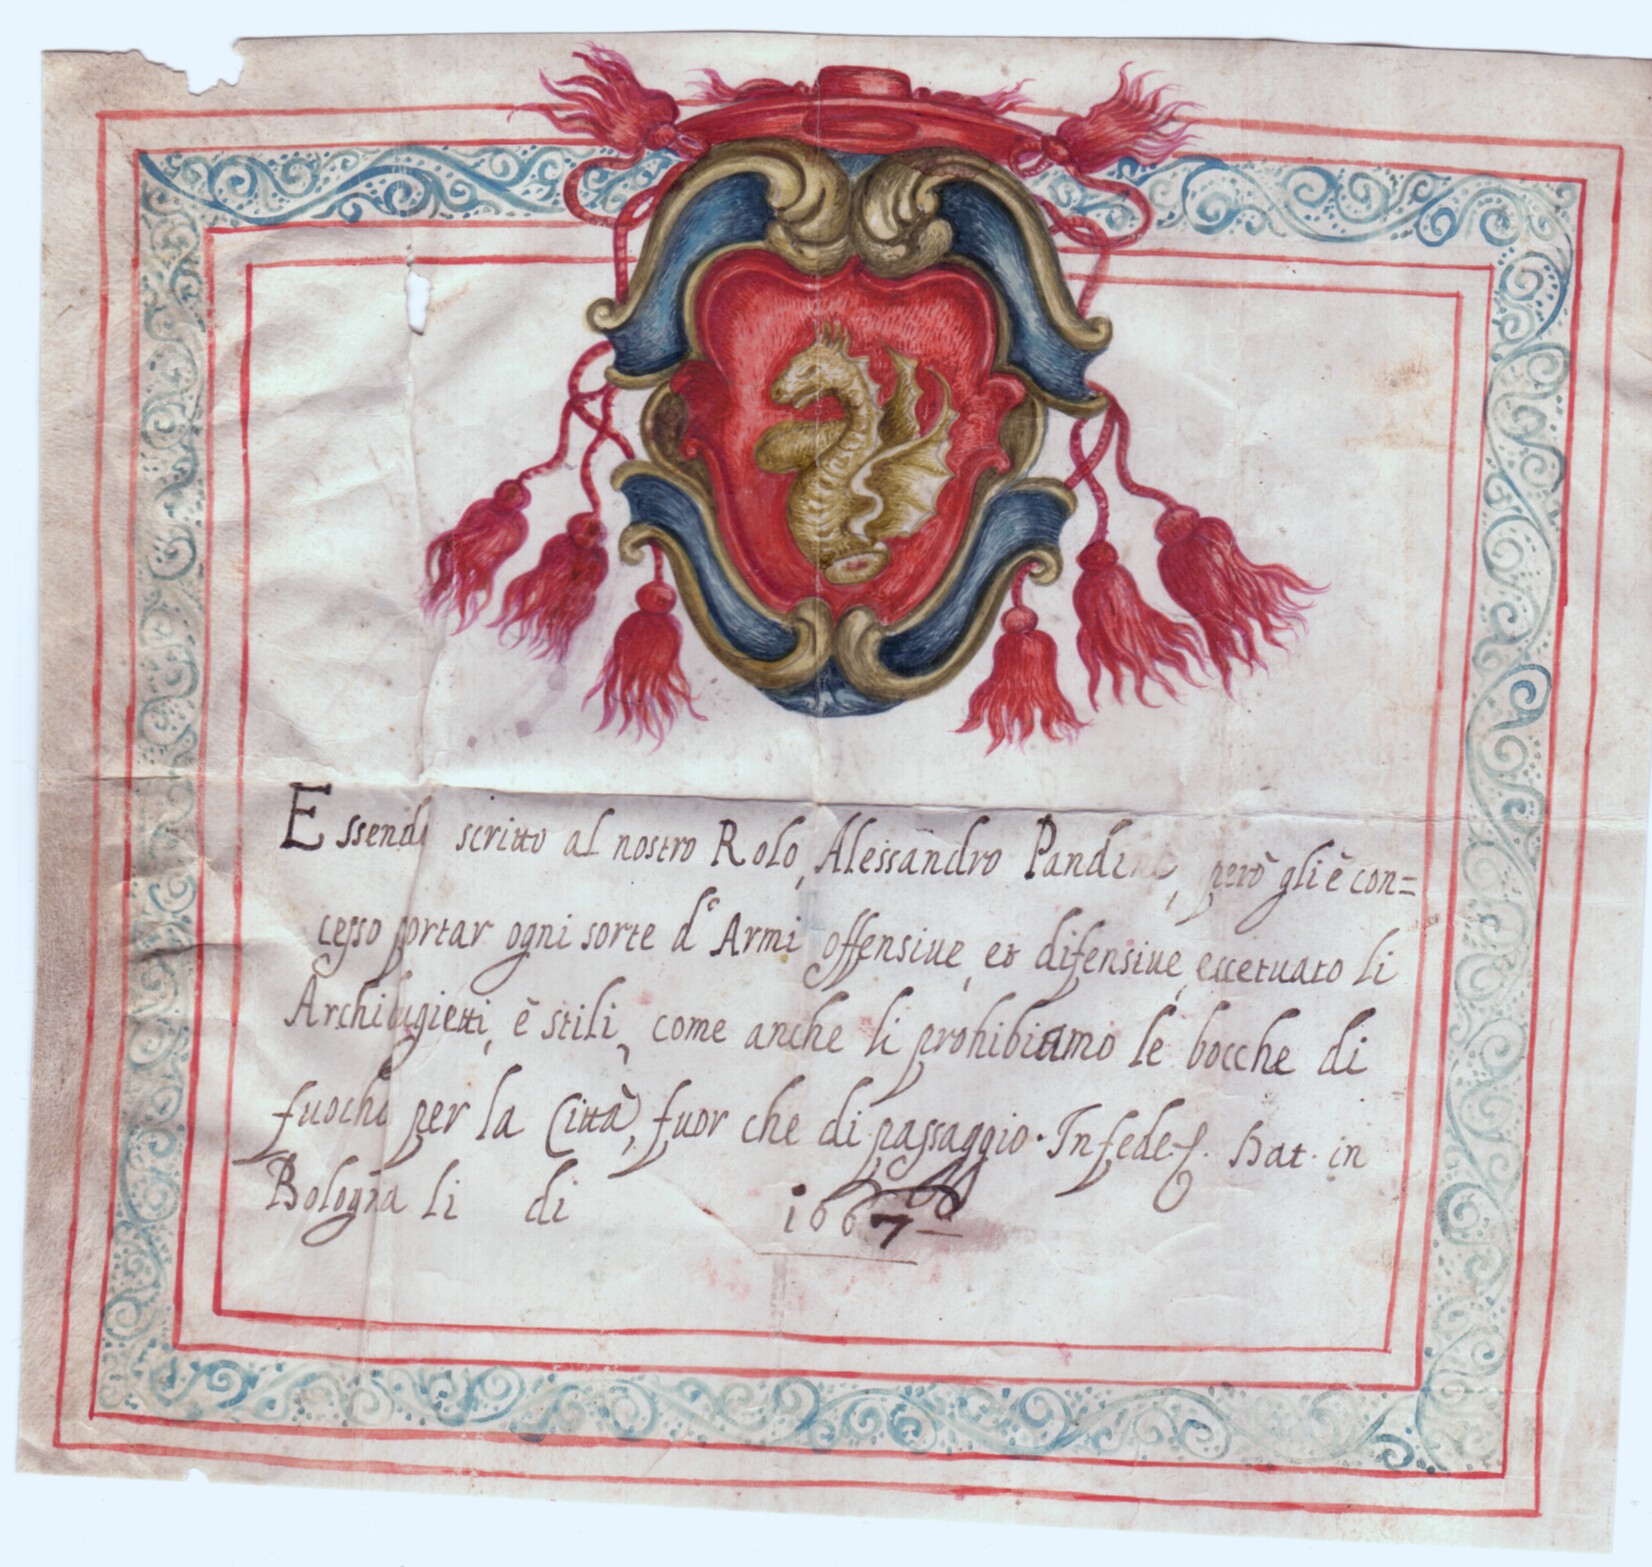 Essendo scritto al nostro Rolo, Alessandro però gli è con=
cesso portar ogni sorte d' Armi offensiue, et difensiue, eccetuato li
Archibugietti, è stili, come anche li prohibiamo le bocche di
fuocho per la Città, fuor che di passaggio. In fede. Dat. in
Bologna li di 1667